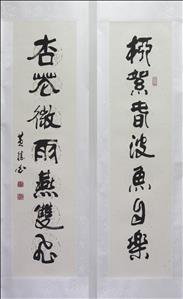 柳絮春波魚自樂
杏花微雨燕雙飛